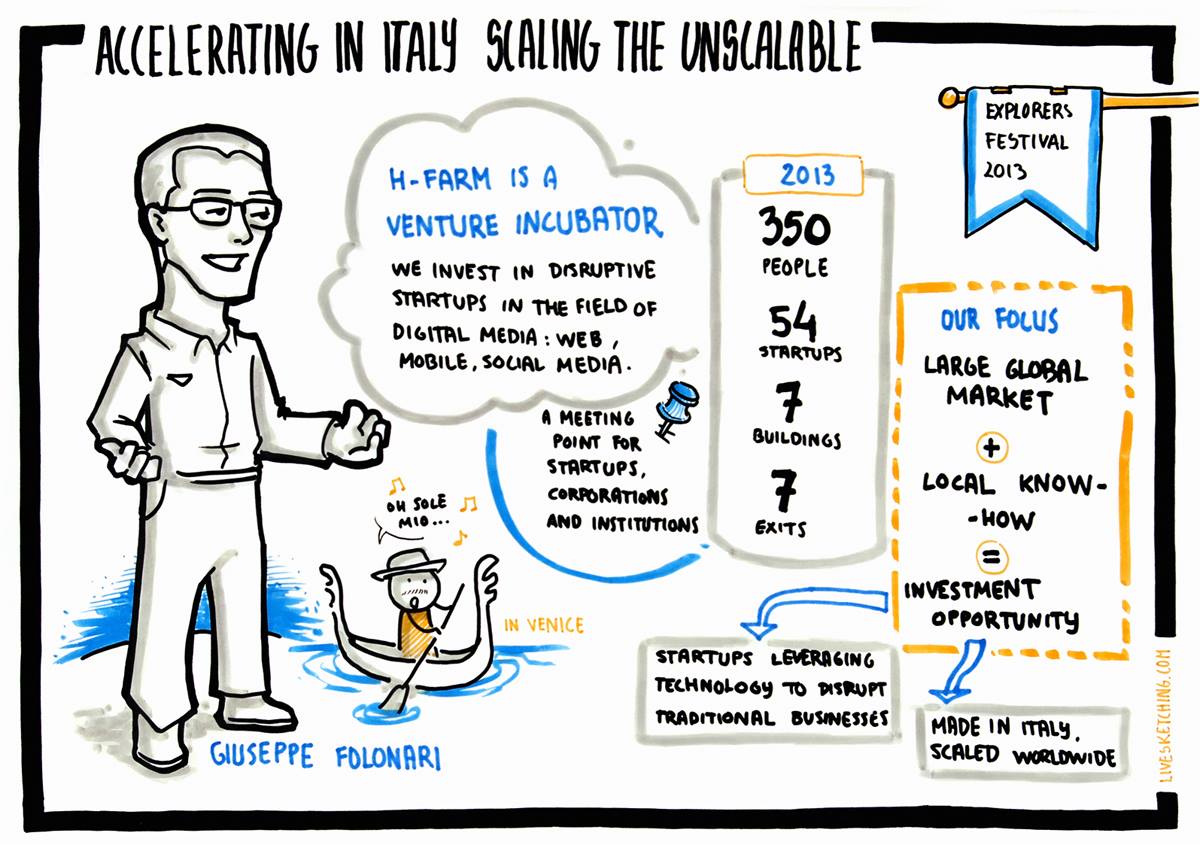 ACCELERATING IN ITALY SCALING THE UNSCALABLE
EXPLORERS
FESTIVAL
2013
H-FARM IS A
VENTURE INCUBATOR
WE INVEST IN DISRUPTIVE
STARTUPS IN THE FIELD OF
DIGITAL MEDIA: WEB,
MOBILE, SOCIAL MEDIA.
A MEETING
POINT FOR
STARTUPS,
CORPORATIONS
AND INSTITUTIONS
2013
350
PEOPLE
54
STARTUPS
7
BUILDINGS
7
EXITS
OUR FOCUS
LARGE GLOBAL
MARKET
+
LOCAL KNOW-
-HOW
=
INVESTMENT
OPPORTUNITY
STARTUPS LEVERAGING
TECHNOLOGY TO DISRUPT
TRADITIONAL BUSINESSES
MADE IN ITALY,
SCALED WORLDWIDE
OH SOLE
MIO...
IN VENICE
GIUSEPPE FOLONARI
LIVESKETCHING.COM